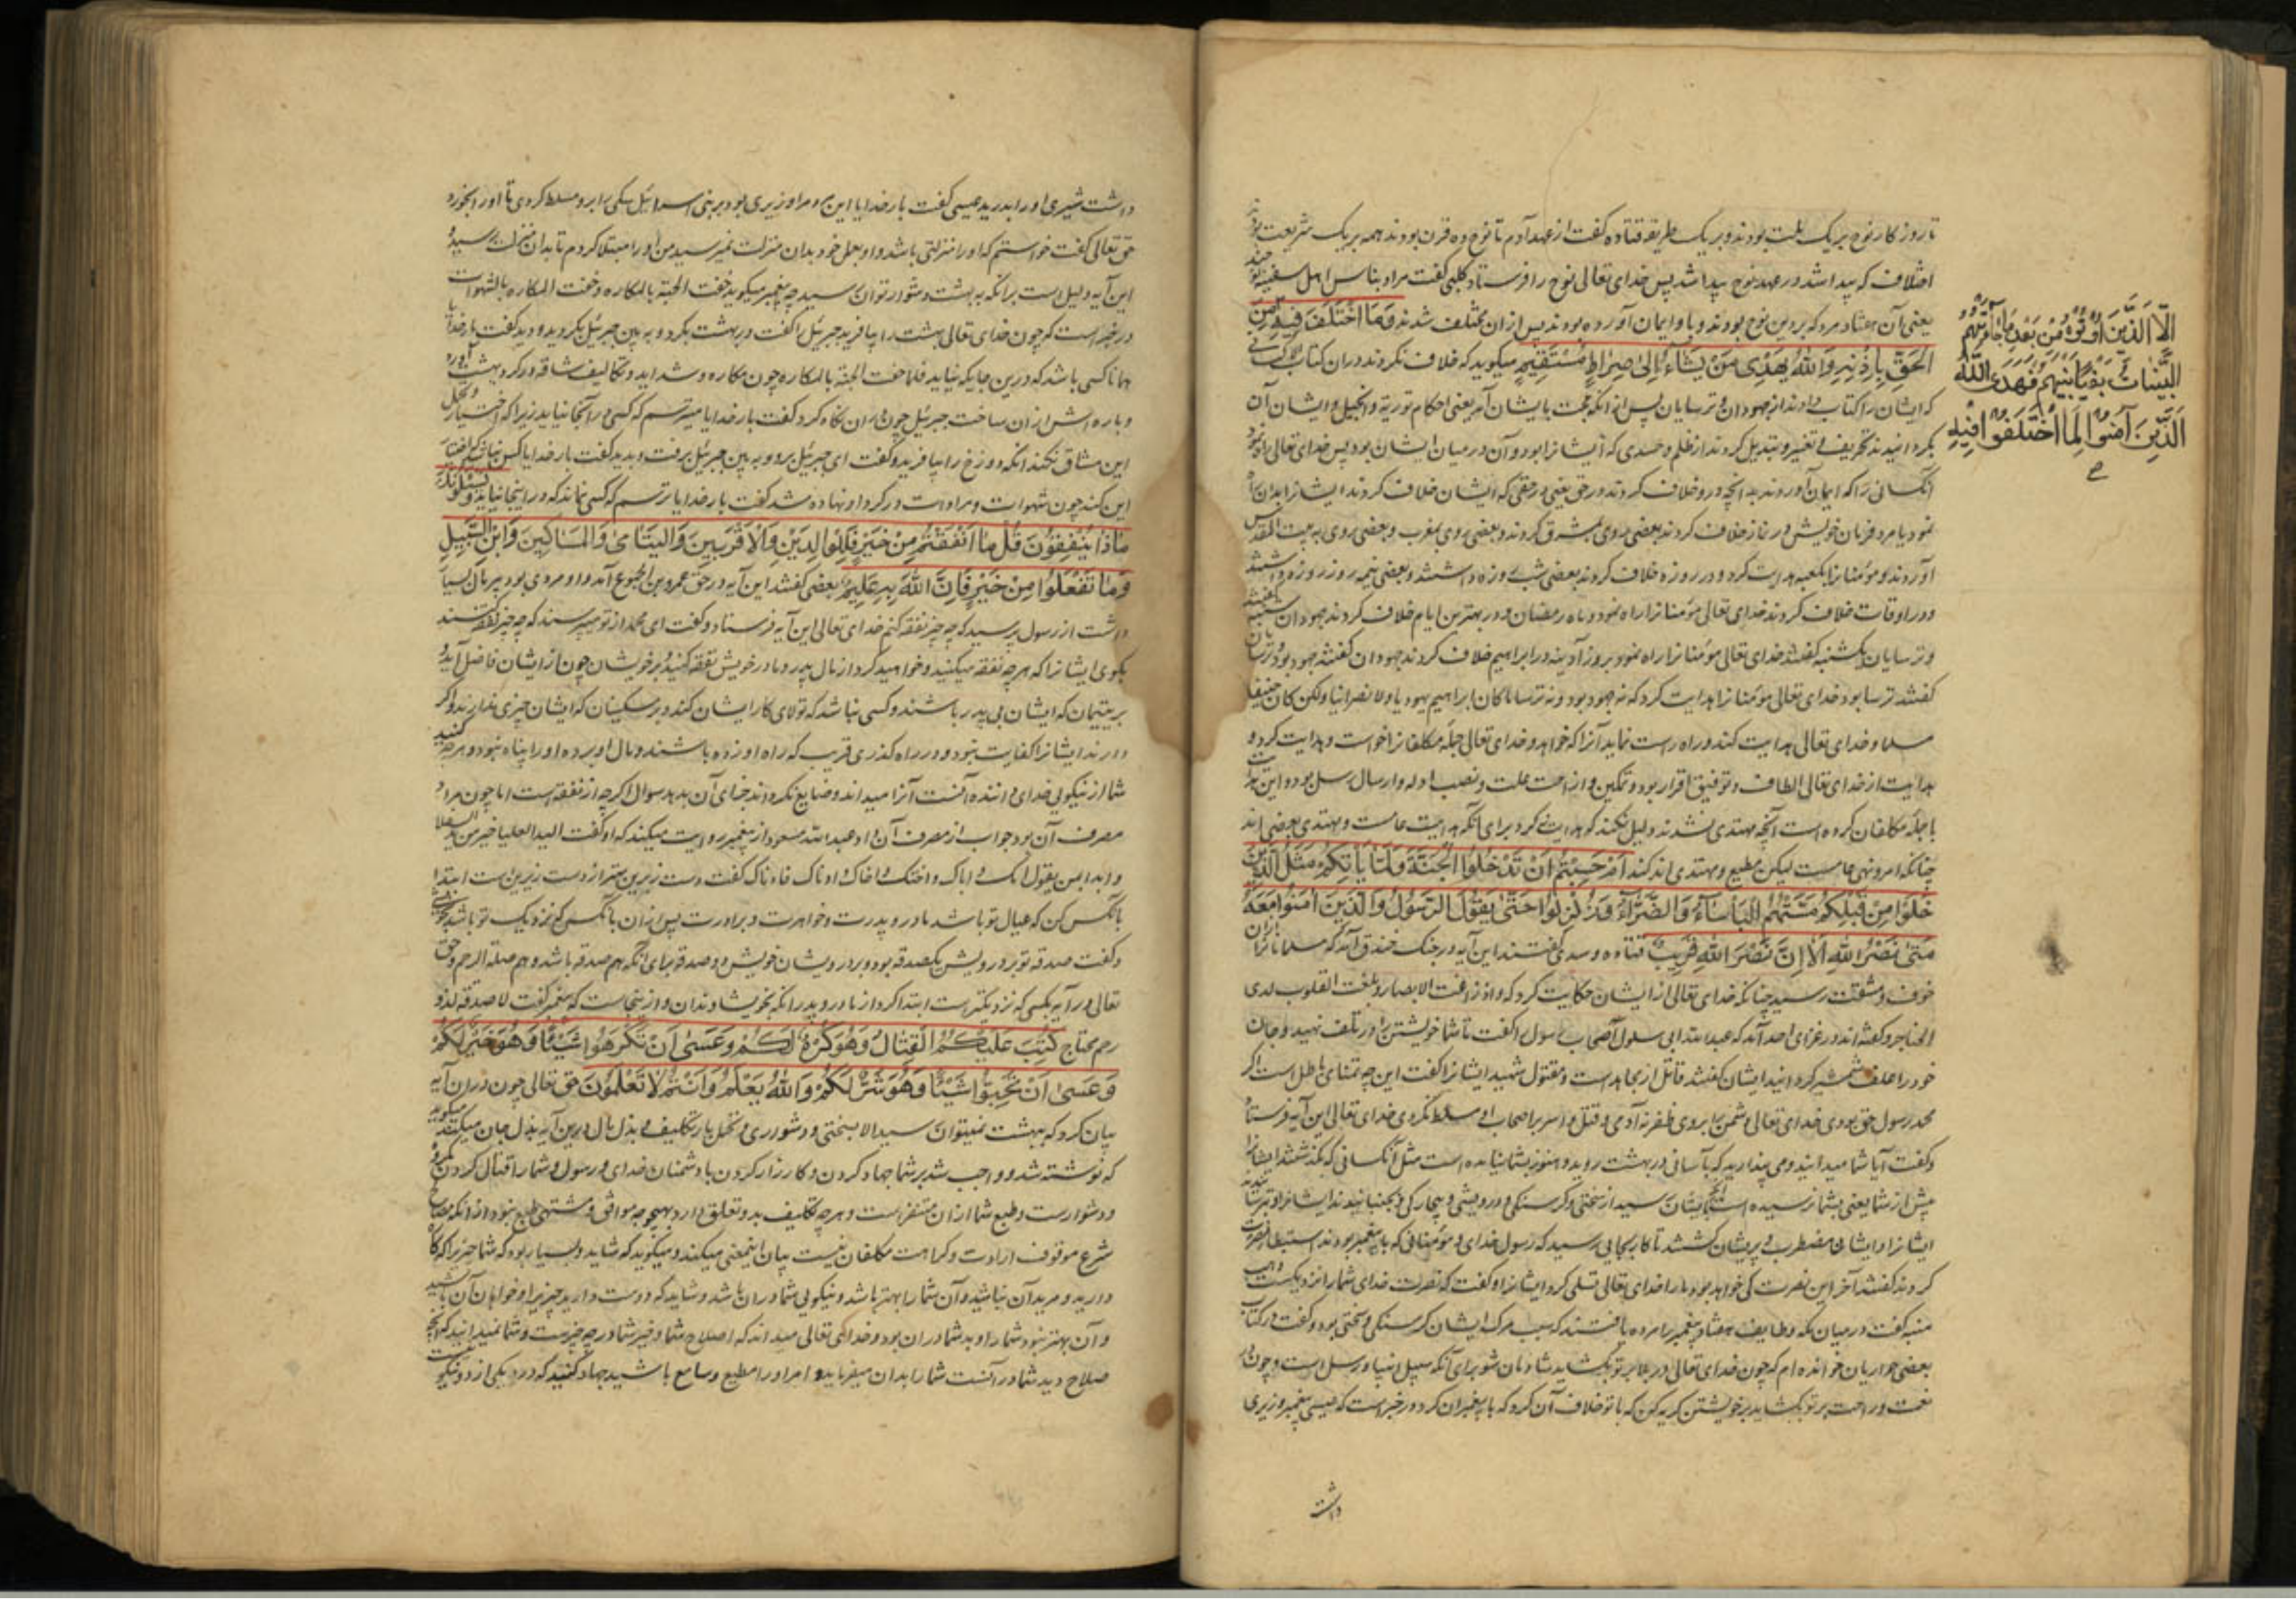 تا روزکار نوح بریک ملت بودند و بریک طریقه قتاده کفت از عهد آدم تا نوح ده قرن بودند همه بریک شریعت بودند
اختلاف که پیدا شد در عهد نوح پیدا شد پس خدای تعالی نوح را فرستاد کلبی کفت مراد بناس اهل سفینه
یعنی آن هشتاد مرد که بر دین نوح بودند و باو ایمان آورده بودند پس از ان مختلف شدند وَمَا اخْتَلَفَ فِيهِ مِنَ
إِلَّا الَّذِينَ أُوتُوهُ مِنْ بَعْدِ مَا جَاءَتْهُمُ
الْبَيِّنَاتُ بَغْيًا بَيْنَهُمْ فَهَدَى اللَّهُ
الَّذِينَ آمَنُوا لِمَا اخْتَلَفُوا فِيهِ
الْحَقِّ بِإِذْنِهِ وَاللَّهُ يَهْدِي مَنْ يَشَاءُ إِلَى صِرَاطٍ مُسْتَقِيمٍ میکوید که خلاف نکردند در ان کتاب
که ایشان را کتاب دادند از جهودان و ترسایان پس از انکه حجت بایشان آمد یعنی احکام توریة و انجیل و ایشان آن
بکردانیدند تحریف و تغییر و تبدیل کردند از ظلم و حسدی که ایشانرا بود و آن در میان ایشان بود پس خدای تعالی راه نمود
آنکسانی را که ایمان آوردند بدانچه درو خلاف کردند در حق یعنی در حقی که ایشان خلاف کردند ایشانرا بدان راه
نمود بامر و فرمان خویش در نماز خلاف کردند بعضی روی بمشرق کردند و بعضی روی بمغرب و بعضی روی به بیت المقدس
آوردند و مؤمنانرا بکعبه هدایت کرد و در روزه خلاف کردند بعضی شب روزه داشتند و بعضی نیمه روز روزه داشتند
و در اوقات خلاف کردند خدای تعالی مؤمنانرا راه نمود بماه رمضان و در بهترین ایام خلاف کردند جهودان شنبه کفتند
و ترسایان یکشنبه کفتند خدای تعالی مؤمنانرا راه نمود بروز آدینه در ابراهیم خلاف کردند جهودان کفتند جهود بود و ترسایان
کفتند ترسا بود خدای تعالی مؤمنانرا هدایت کرد که نه جهود بود و نه ترسا ما کان ابراهیم یهودیا ولا نصرانیا ولکن کان حنیفا
مسلما و خدای تعالی هدایت کند و راه راست نماید آنرا که خواهد و خدای تعالی جمله مکلفانرا خواست و هدایت کرد و
هدایت از خدای تعالی الطاف و توفیق اقرار بود و تمکین و ازاحت علت و نصب ادله و ارسال رسل بود و این
با جمله مکلفان کرده است آنچه مهتدی نشدند دلیل نکند که هدایت نکرد برای آنکه هدایت عامست و مهتدی بعضی اند
چنانکه امر و نهی عامست لیکن مطیع و مهتدی اندکند أَمْ حَسِبْتُمْ أَنْ تَدْخُلُوا الْجَنَّةَ وَلَمَّا يَأْتِكُمْ مَثَلُ الَّذِينَ
خَلَوْا مِنْ قَبْلِكُمْ مَسَّتْهُمُ الْبَأْسَاءُ وَالضَّرَّاءُ وَزُلْزِلُوا حَتَّى يَقُولَ الرَّسُولُ وَالَّذِينَ آمَنُوا مَعَهُ
مَتَى نَصْرُ اللَّهِ أَلَا إِنَّ نَصْرَ اللَّهِ قَرِيبٌ قتاده و سدی کفتند این آیه در جنک خندق آمد که مسلمانانرا
خوف و مشقت رسید چنانکه خدای تعالی از ایشان حکایت کرد که و اذ زاغت الابصار و بلغت القلوب لدی
الحناجر و کفته اند در غزای احد آمد که عبدالله ابی سلول اصحاب رسول را کفت تا شما خویشتن را در تلف نهید و جان
خود را علف شمشیر کردانید ایشان کفتند قاتل از ما مجاهد است و مقتول شهید ایشانرا کفت این چه تمنای باطل است اکر
محمد رسول حق بودی خدای تعالی دشمن را بروی ظفر ندادی و قتل و اسر بر اصحاب او مسلط نکردی خدای تعالی این آیه فرستاد
و کفت آیا شما میدانید و می پندارید که بآسانی در بهشت روید و هنوز بشما نیامده است مثل آنکسانی که کذشتند
پیش از شما یعنی بشما نرسیده است آنچه بایشان رسید از سختی و کرسنکی و درویشی و بیچارکی و بجنبانیدند ایشانرا
ایشانرا و ایشان مضطرب و پریشان کشتند تا کار بجایی رسید که رسول خدای و مؤمنانی که با پیغمبر بودند استبطاء نصرت
کردند کفتند آخر این نصرت کی خواهد بود ما را خدای تعالی تسلی کرد ایشانرا و کفت که نصرت خدای شما را نزدیکست
منبه کفت در میان مکه و طایف هفتاد پیغمبر را مرده یافتند که سبب مرک ایشان کرسنکی و سختی بود و کفت در کتاب
بعضی حواریان خوانده ام که چون خدای تعالی در بلا بر تو بکشاید شادمان شو برای آنکه سبیل انبیا و رسل است و چون در
نعمت و راحت بر تو بکشاید بر خویشتن کریه کن که با تو خلاف آن کرد که با پیغمبران کرد و در خبر است که عیسی پیغمبر وزیری
داشت
داشت شیری او را بدرید عیسی کفت بار خدایا این مرد مرا وزیری بود بر بنی اسرائیل سکی را برو مسلط کردی تا او را بخورد
حق تعالی کفت خواستم که او را منزلتی باشد و او بعمل خود بدان منزلت نمیرسید من او را مبتلا کردم تا بدان منزلت رسید و
این آیه دلیل است بر آنکه به بهشت دشوار توان رسید چه پیغمبر میکوید حفت الجنة بالمکاره و حفت النار بالشهوات
در خبر است که چون خدای تعالی بهشت را بیافرید جبرئیل را کفت در بهشت بکرد و به بین جبرئیل بکردید و دید کفت بار خدایا
همانا کسی باشد که درین جایکه نیاید فلما حفت الجنة بالمکاره چون مکاره و شداید و تکالیف شاقه در کرد بهشت
این مشاق نکند آنکه دوزخ را بیافرید و کفت ای جبرئیل برو و به بین جبرئیل برفت و بدید کفت بار خدایا کس
این کند چون شهوات و مرادات در کرد او نهاده شد کفت بار خدایا ترسم که کسی نماند که در اینجا نیاید
مَاذَا يُنْفِقُونَ قُلْ مَا أَنْفَقْتُمْ مِنْ خَيْرٍ فَلِلْوَالِدَيْنِ وَالْأَقْرَبِينَ وَالْيَتَامَى وَالْمَسَاكِينِ وَابْنِ السَّبِيلِ
وَمَا تَفْعَلُوا مِنْ خَيْرٍ فَإِنَّ اللَّهَ بِهِ عَلِيمٌ بعضی کفتند این آیه در حق عمرو بن الجموح آمد و او مردی بود پیر مال بسیار
داشت از رسول پرسید که چه چیز نفقه کنم خدای تعالی این آیه فرستاد و کفت ای محمد از تو میپرسند که چه چیز نفقه کنند
بکوی ایشانرا که هر چه نفقه میکنید و خواهید کرد از مال بپدر و مادر خویش نفقه کنید و بر خویشان چون از ایشان فاضل آید و
بر یتیمان که ایشان بی پدر باشند و کسی نباشد که تولای کار ایشان کند و بر مسکینان که ایشان چیزی ندارند و اکر
دارند ایشانرا کفایت نبود و در راه کذری قریب که راه او زده باشند و مال او برده او را پناه نبود و هر چه کنید
شما از نیکویی خدای داننده آنست آنرا میداند و ضایع نکرداند جزای آن بدهد سوال اکرچه از نفقه است اما چون مراد
مصرف آن بود جواب از مصرف آن داد عبدالله مسعود از پیغمبر روایت میکند که او کفت الید العلیا خیر من ید السفلا
وابدا بمن یقول امک و اباک و اختک و اخاک و ادناک فادناک کفت دست زبرین بهتر از دست زیرین است ابتدا
بآنکس کن که عیال تو باشد مادر و پدرت و خواهرت و برادرت پس از ان بآنکس که نزدیک تو باشد
و کفت صدقه تو بر درویش یکصدقه بود و بر درویشان خویش دو صدقه برای آنکه هم صدقه باشد و هم صلة الرحم و حق
تعالی در آیه بکسی که نزدیکتر است ابتدا کرد از مادر و پدر آنکه بخویشاوندان و از ینجاست که پیغمبر کفت لا صدقة لذو
رحم محتاج كُتِبَ عَلَيْكُمُ الْقِتَالُ وَهُوَ كُرْهٌ لَكُمْ وَعَسَى أَنْ تَكْرَهُوا شَيْئًا وَهُوَ خَيْرٌ لَكُمْ
وَعَسَى أَنْ تُحِبُّوا شَيْئًا وَهُوَ شَرٌّ لَكُمْ وَاللَّهُ يَعْلَمُ وَأَنْتُمْ لَا تَعْلَمُونَ حق تعالی چون در ان آیه
بیان کرد که ببهشت نمیتوان رسید الا بسختی و دشواری و تحمل بار تکلیف و بذل مال درین آیه بذل جان میکوید
که نوشته شد و واجب شد بر شما جهاد کردن و کارزار کردن با دشمنان خدای و رسول و شما را قتال کردن مکروه
و دشوارست و طبع شما از ان متنفر است و هر چه تکلیف بدو تعلق دارد بهیچوجه موافق و مشتهی طبع نبود از انکه مصالح
شرع موقوف ارادت و کراهت مکلفان نیست بیان اینمعنی میکند و میکوید که شاید و بسیار بود که شما چیزیرا که کاره
دارید و مرید آن نباشید و آن شما را بهتر باشد و نیکویی شما در ان باشد و شاید که دوست دارید چیزیرا و خواهان آن باشید
و آن بهتر نبود شما را و بد شما در ان بود و خدای تعالی میداند که اصلاح شما و خیر شما در چه چیزست و شما نمیدانید که آنچه
صلاح دید شما در آنست شما را بدان میفرماید و امر او را مطیع و سامع باشید جهاد کنید که در و یکی از دو نیکویست